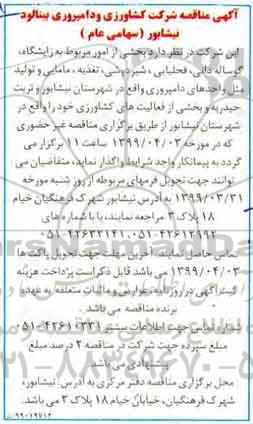 آگهی مناقصه شرکت کشاورزی ودامپروری بینالود
نیشابور ( سهامی عام )
این شرکت در نظر دارد بخشی از امور مربوط به زایشگاه،
گوساله دانی، فحلیابی، شیردوشی، تغذیه، مامایی و تولید
مثل واحدهای دامپروری واقع در شهرستان نیشابور و تربت
حیدریه و بخشی از فعالیت های کشاورزی خود را واقع در
شهرستان نیشابور از طریق برگزاری مناقصه غیر حضوری
که در مورخه ۱۳۹۹/۰۴/۰۳ ساعت ۱۱ برگزار می
گردد به پیمانکار واجد شرایط واگذار نماید، متقاضیان می
توانند جهت تحویل فرمهای مربوطه از روز شنبه مورخه
۱۳۹۹/۰۳/۳۱ به آدرس نیشابور شهرک فرهنگیان خیام
۱۸ پلاک ۳ مراجعه نمایند، یا با شماره های
۰۵۱-۴۲۶۱۲۹۹۲ ،۰۵۱-۴۲۶۳۳۱۴۱
تماس حاصل نمایند. آخرین مهلت جهت تحویل پاکت ها
۱۳۹۹/۰۴/۰۳ می باشد قابل ذکراست پرداخت هزینه
نشرآگهی در روزنامه، عوارض و مالیات متعلقه به عهده
برنده مناقصه می باشد.
شماره تماس جهت اطلاعات بیشتر ۰۵۱-۴۲۶۱۰۳۳۱
مبلغ سپرده جهت شرکت در مناقصه ۲ درصد مبلغ
پیشنهادی می باشد.
محل برگزاری مناقصه دفتر مرکزی به آدرس: نیشابور،
شهرک فرهنگیان، خیابان خیام ۱۸ پلاک ۳ می باشد.
۹۹۰۱۹۷۱۲
ParsNamadData
۰۲۱-۸۸۳۴۹۶۷۰-۵